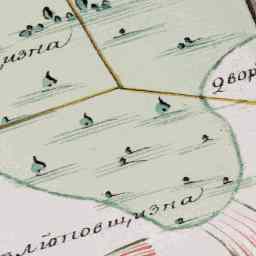 изна
Двор
лютовщизна